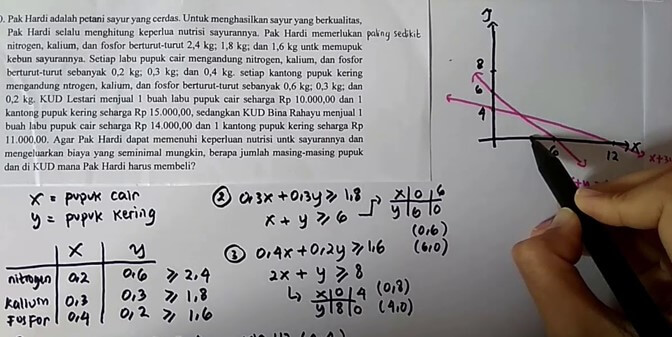 ). Pak Hardi adalah petani sayur yang cerdas. Untuk menghasilkan sayur yang berkualitas,
Pak Hardi selalu menghitung keperlua nutrisi sayurannya. Pak Hardi memerlukan paling sedikit
nitrogen, kalium, dan fosfor berturut-turut 2,4 kg; 1,8 kg; dan 1,6 kg untk memupuk
kebun sayurannya. Setiap labu pupuk cair mengandung nitrogen, kalium, dan fosfor
berturut-turut sebanyak 0,2 kg; 0,3 kg; dan 0,4 kg. setiap kantong pupuk kering
mengandung ntrogen, kalium, dan fosfor berturut-turut sebanyak 0,6 kg; 0,3 kg; dan
0,2 kg. KUD Lestari menjual 1 buah labu pupuk cair seharga Rp 10.000,00 dan 1
kantong pupuk kering seharga Rp 15.000,00, sedangkan KUD Bina Rahayu menjual 1
buah labu pupuk cair seharga Rp 14.000,00 dan 1 kantong pupuk kering seharga Rp
11.000,00. Agar Pak Hardi dapat memenuhi keperluan nutrisi untk sayurannya dan
mengeluarkan biaya yang seminimal mungkin, berapa jumlah masing-masing pupuk
dan di KUD mana Pak Hardi harus membeli?
x = pupuk cair
y = pupuk kering
x y
nitrogen 0,2 0,6 ≥ 2,4
kalium 0,3 0,3 ≥ 1,8
Fosfor 0,4 0,2 ≥ 1,6
② 0,3x + 0,3y ≥ 1,8
x + y ≥ 6
x 0 6
y 6 0
(0,6)
(6,0)
③ 0,4x + 0,2y ≥ 1,6
2x + y ≥ 8
x 0 4 (0,8)
y 8 0 (4,0)
y
8
6
4
6
12
x